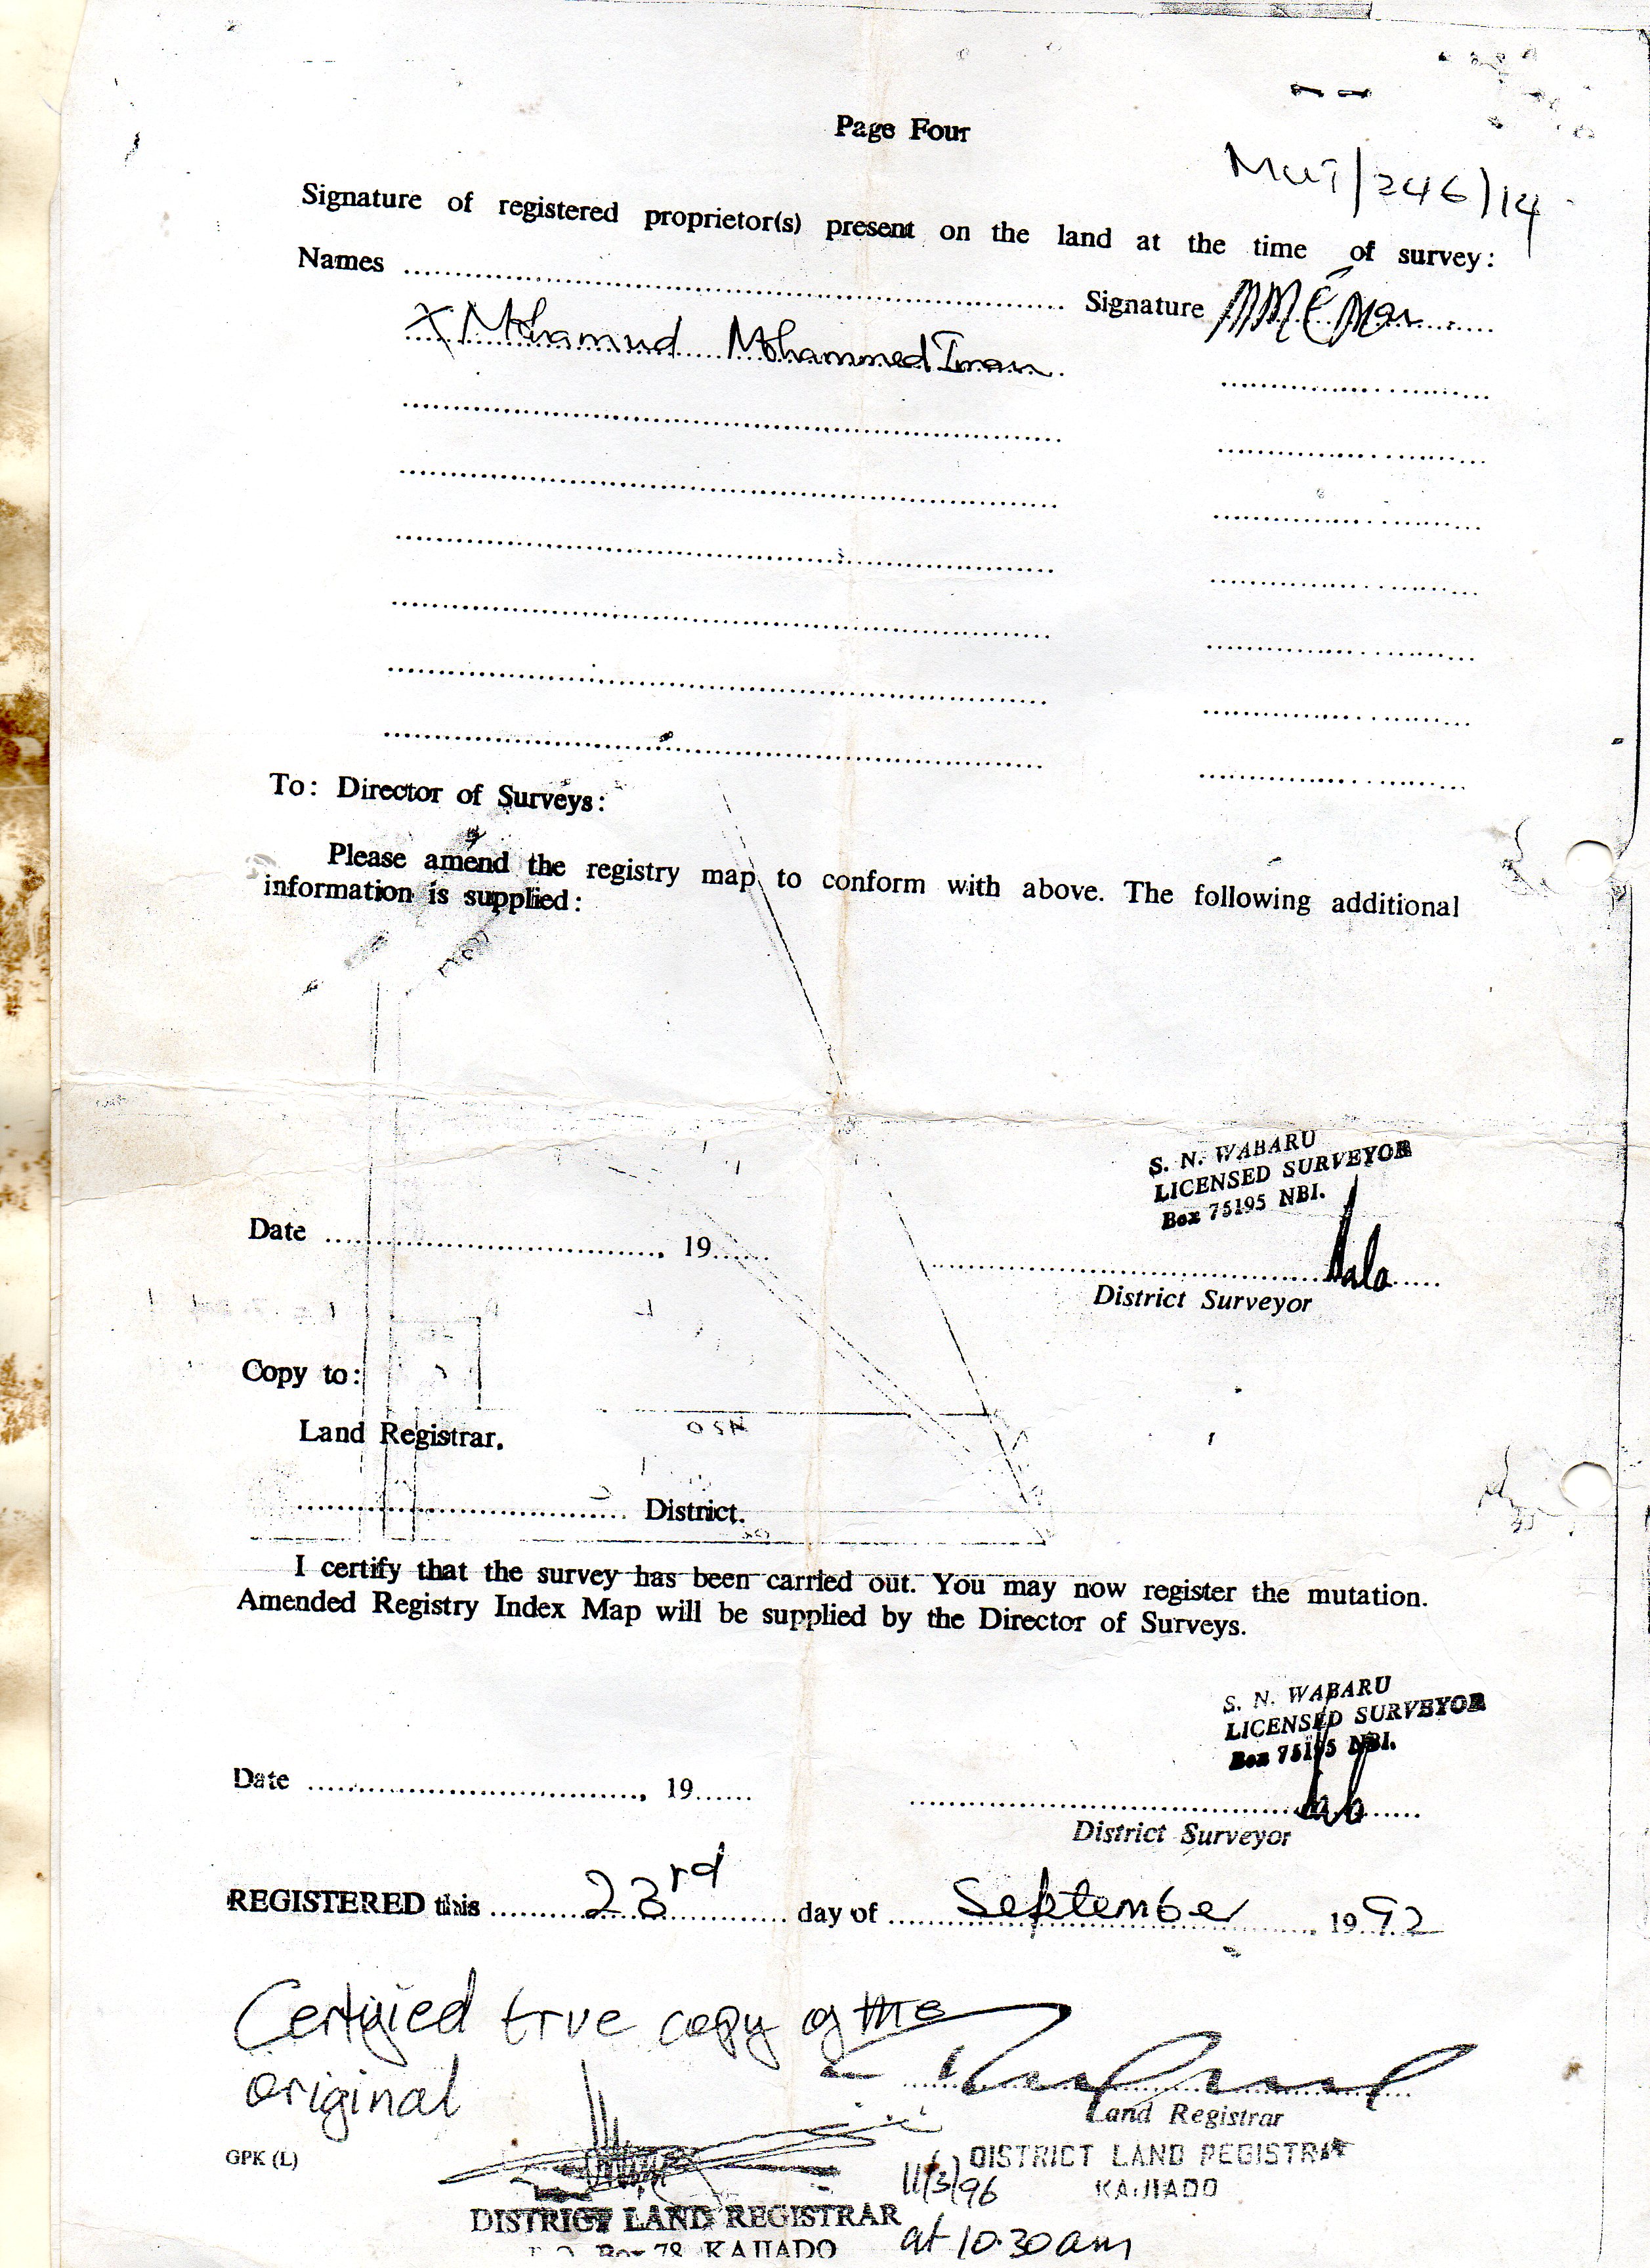 Page Four
MUT/246/14
Signature of registered proprietor(s) present on the land at the time of survey:
Names ........ Signature MM Eman
x Mohamud Mohammed Iman
To: Director of Surveys:
Please amend the registry map to conform with above. The following additional
information is supplied:
S. N. WABARU
LICENSED SURVEYOR
Box 75195 NBI.
Date ........, 19......
District Surveyor
Copy to:
Land Registrar.
........ District.
I certify that the survey has been carried out. You may now register the mutation.
Amended Registry Index Map will be supplied by the Director of Surveys.
S. N. WABARU
LICENSED SURVEYOR
Box 75195 NBI.
Date ........, 19......
District Surveyor
REGISTERED this 23rd day of September, 1992
Certified true copy of the
original
Land Registrar
GPK (L)
DISTRICT LAND REGISTRAR
KAJIADO
11/3/96
at 10.30am
DISTRICT LAND REGISTRAR
P.O. Box 78, KAJIADO